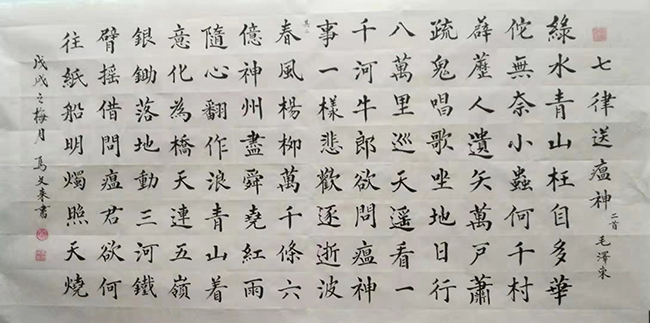 七律送瘟神 二首 毛澤東
綠水青山枉自多華
佗無奈小蟲何千村
薜藶人遺矢萬戶蕭
疏鬼唱歌坐地日行
八萬里巡天遥看一
千河牛郎欲問瘟神
事一樣悲歡逐逝波
其二
春風楊柳萬千條六
億神州盡舜堯紅雨
隨心翻作浪青山着
意化為橋天連五嶺
銀鋤落地動三河鐵
臂摇借問瘟君欲何
往紙船明燭照天燒
戊戌之梅月 馬文來書